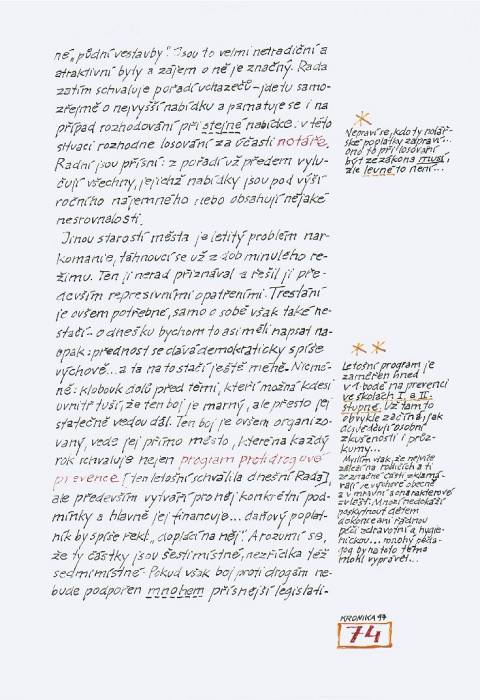 né „půdní vestavby". Jsou to velmi netradiční a
atraktivní byty a zájem o ně je značný. Rada
zatím schvaluje pořadí uchazečů – jde tu samo-
zřejmě o nejvyšší nabídku a pamatuje se i na
případ rozhodování při stejné nabídce: v této
situaci rozhodne losování za účasti notáře.
Radní jsou přísní: z pořadí už předem vylu-
čují všechny, jejichž nabídky jsou pod výší
ročního nájemného nebo obsahují nějaké
nesrovnalosti.
Jinou starostí města je letitý problém nar-
komanie, táhnoucí se už z dob minulého re-
žimu. Ten ji nerad přiznával a řešil ji pře-
devším represivními opatřeními. Trestání
je ovšem potřebné, samo o sobě však také ne-
stačí – o dnešku bychom to asi měli napsat na-
opak: přednost se dává demokraticky spíše
výchově... a ta na to stačí ještě méně. Nicmé-
ně: klobouk dolů před těmi, kteří možná kdesi
uvnitř tuší, že ten boj je marný, ale přesto jej
statečně vedou dál. Ten boj je ovšem organizo-
vaný, vede jej přímo město, které na každý
rok schvaluje nejen program protidrogové
prevence (ten letošní schválila dnešní Rada),
ale především vytváří pro něj konkrétní pod-
mínky a hlavně jej financuje... daňový poplat-
ník by spíše řekl „doplácí na něj". A rozumí se,
že ty částky jsou šestimístné, nezřídka též
sedmimístné. Pokud však boj proti drogám ne-
bude podpořen mnohem přísnější legislati-
*
Nepraví se, kdo ty notář-
ské poplatky zapraví...
ono to při losování
být ze zákona musí,
ale levné to není...
* *
Letošní program je
zaměřen hned
v 1. bodě na prevenci
ve školách I. a II.
stupně. Už tam to
obvykle začíná, jak
dosvědčují osobní
zkušenosti i průz-
kumy...
Myslím však, že nejvíce
záleží na rodičích a ti
ze značné části zklamá-
vají ve výchově obecně
a v mravní a charakterové
zvlášť. Mnozí nedokáží
poskytnout dětem
dokonce ani řádnou
péči zdravotní a hygie-
nickou... mnohý peda-
gog by na toto téma
mohl vyprávět...
KRONIKA 97
74